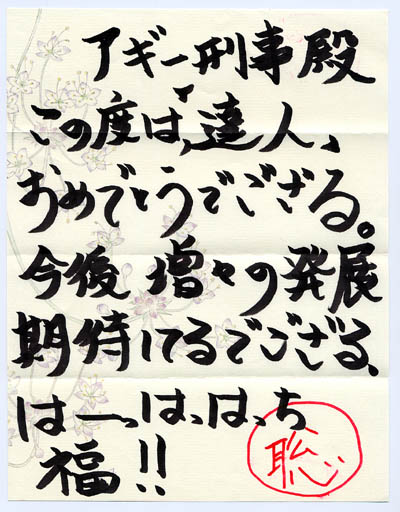 アギー刑事殿
この度は、達人、
おめでとうでござる。
今後増々の発展
期待してるでござる、
はーっ、はっ、はっ、ち
福!!
聡